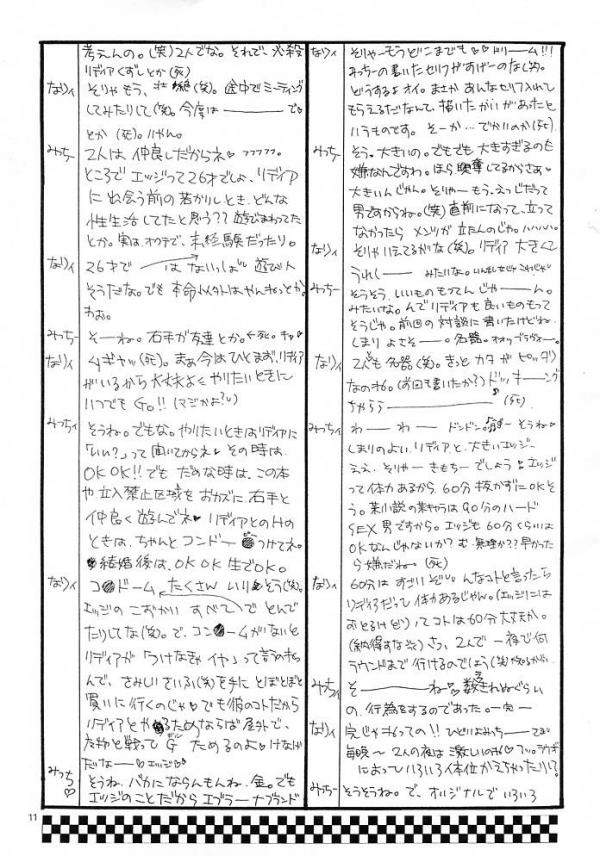 考えんの。(笑)2人でな。それで、必殺
リディアくずしとか(死)
なりィ そりゃもう、(笑)。途中でミーティング
してみたりして(笑)。今度は――――でっ
とか(死)。いやん。
みっちー 2人は仲良しだからネ♡ フフフフフ。
ところでエッジって26才でしょ、リディア
に出会う前の若かりしとき、どんな
性生活してたと思う??遊びまわってた
とか。実は、オクテで、未経験だったり。
なりィ 26才で――はないっしょ 遊び人
そうだな。でも本命以外はやんねっとか。
わお。
みっちー そーね。右手が友達とか。
なりィ ムギャッ(死)。まぁ今はひとまず、リディア
がいるから やりたいときに
いつでもGo!!(マジかよ?)
みっちィ そうね。でもな。やりたいときはリディアに
「いい?」って聞いてからネ♡ その時は
OK OK!! でも だめな時は、この本
や立入禁止区域をおカズに、右手と
仲良く遊んでネ♡ リディアとのHの
ときは、ちゃんとコンドーつけてネ。
結婚後は、OK OK 生でOK。
なりィ コドーム たくさんいりそう(笑)。
エッジのこづかい すべてとんで
たりしてな(笑)。で、コンームがないと
リディアが「つけなきゃイヤ」って言うのも
んで、さみしいさいふ(笑)を手にとぼとぼと
買いに行くのじゃ♡でも彼のコトだから
リディアとやるためならば屋外で、
と戦ってG ためるのよ♡けなげ
だな―♡エッジ♡
みっち♡ そうね、バカにならんもんね、金。でも
エッジのことだから エブラーナブランド
なりィ そりゃーもうどこまでも♡ドリーム!!!
みっちーの書いたセリフがすげーのな(笑)。
どうするよオイ。まさかあんなセリフ入れて
もらえるだなんて、描いたかいがあったと
いうものです。そーか…でかいのか(死)
みっちー そう。大きいの。でもでも大きすぎるのも
嫌なんですわ。ほら興奮してるからさぁ
大きいんじゃん。そりゃーもう、えっじだって
男ですからね。(笑)直前になって、立って
なかったら メンツが立たんのじゃ。ハハハい。
なりィ そりゃいえてるがな(笑)。リディア大きくて
うれし――みたいな。
みっちー そうそう、いいものもってんじゃーん。
みたいなね。んでリディアも良いものもって
そうじゃ。前回の対談に書いたけどね、
しまりよさそー。名器。
なりィ 2人とも名器(笑)。きっとカタがピッタリ
なのね。(お前も書いたか?)ドッキーング
ちゃらら――――(死)
みっちィ わーわードンドン。そうね♡
しまりのよいリディアと、大きいエッジ
ええ、そりゃーきもちーでしょう♡エッジ
って体力あるから60分抜かずにOKそ
う。某小説の某キャラは90分のハード
SEX男ですから。エッジも60分くらいは
OKなんじゃないか?む、無理か??早かった
ら嫌だねー(死)
なりィ 60分はすごいぞい、んなコトと言ったら
リディアだって体力あるじゃん。(エッジには
おとるけど)ってコトは60分大丈夫か。
(納得すな)さっ、2人で一夜で何
ラウンドまで行けるのでしょう
みちィ そ――――ね♡殺されぬぐらい
の、行為をするのであった。
なりィ 完じゃねっての!!ひどいよみち――てまぁ
毎晩〜2人の夜は激しいのね
によっていろいろ体位がえちゃったりして。
みっちー そうそうね。で、オリジナルでいろいろ
11